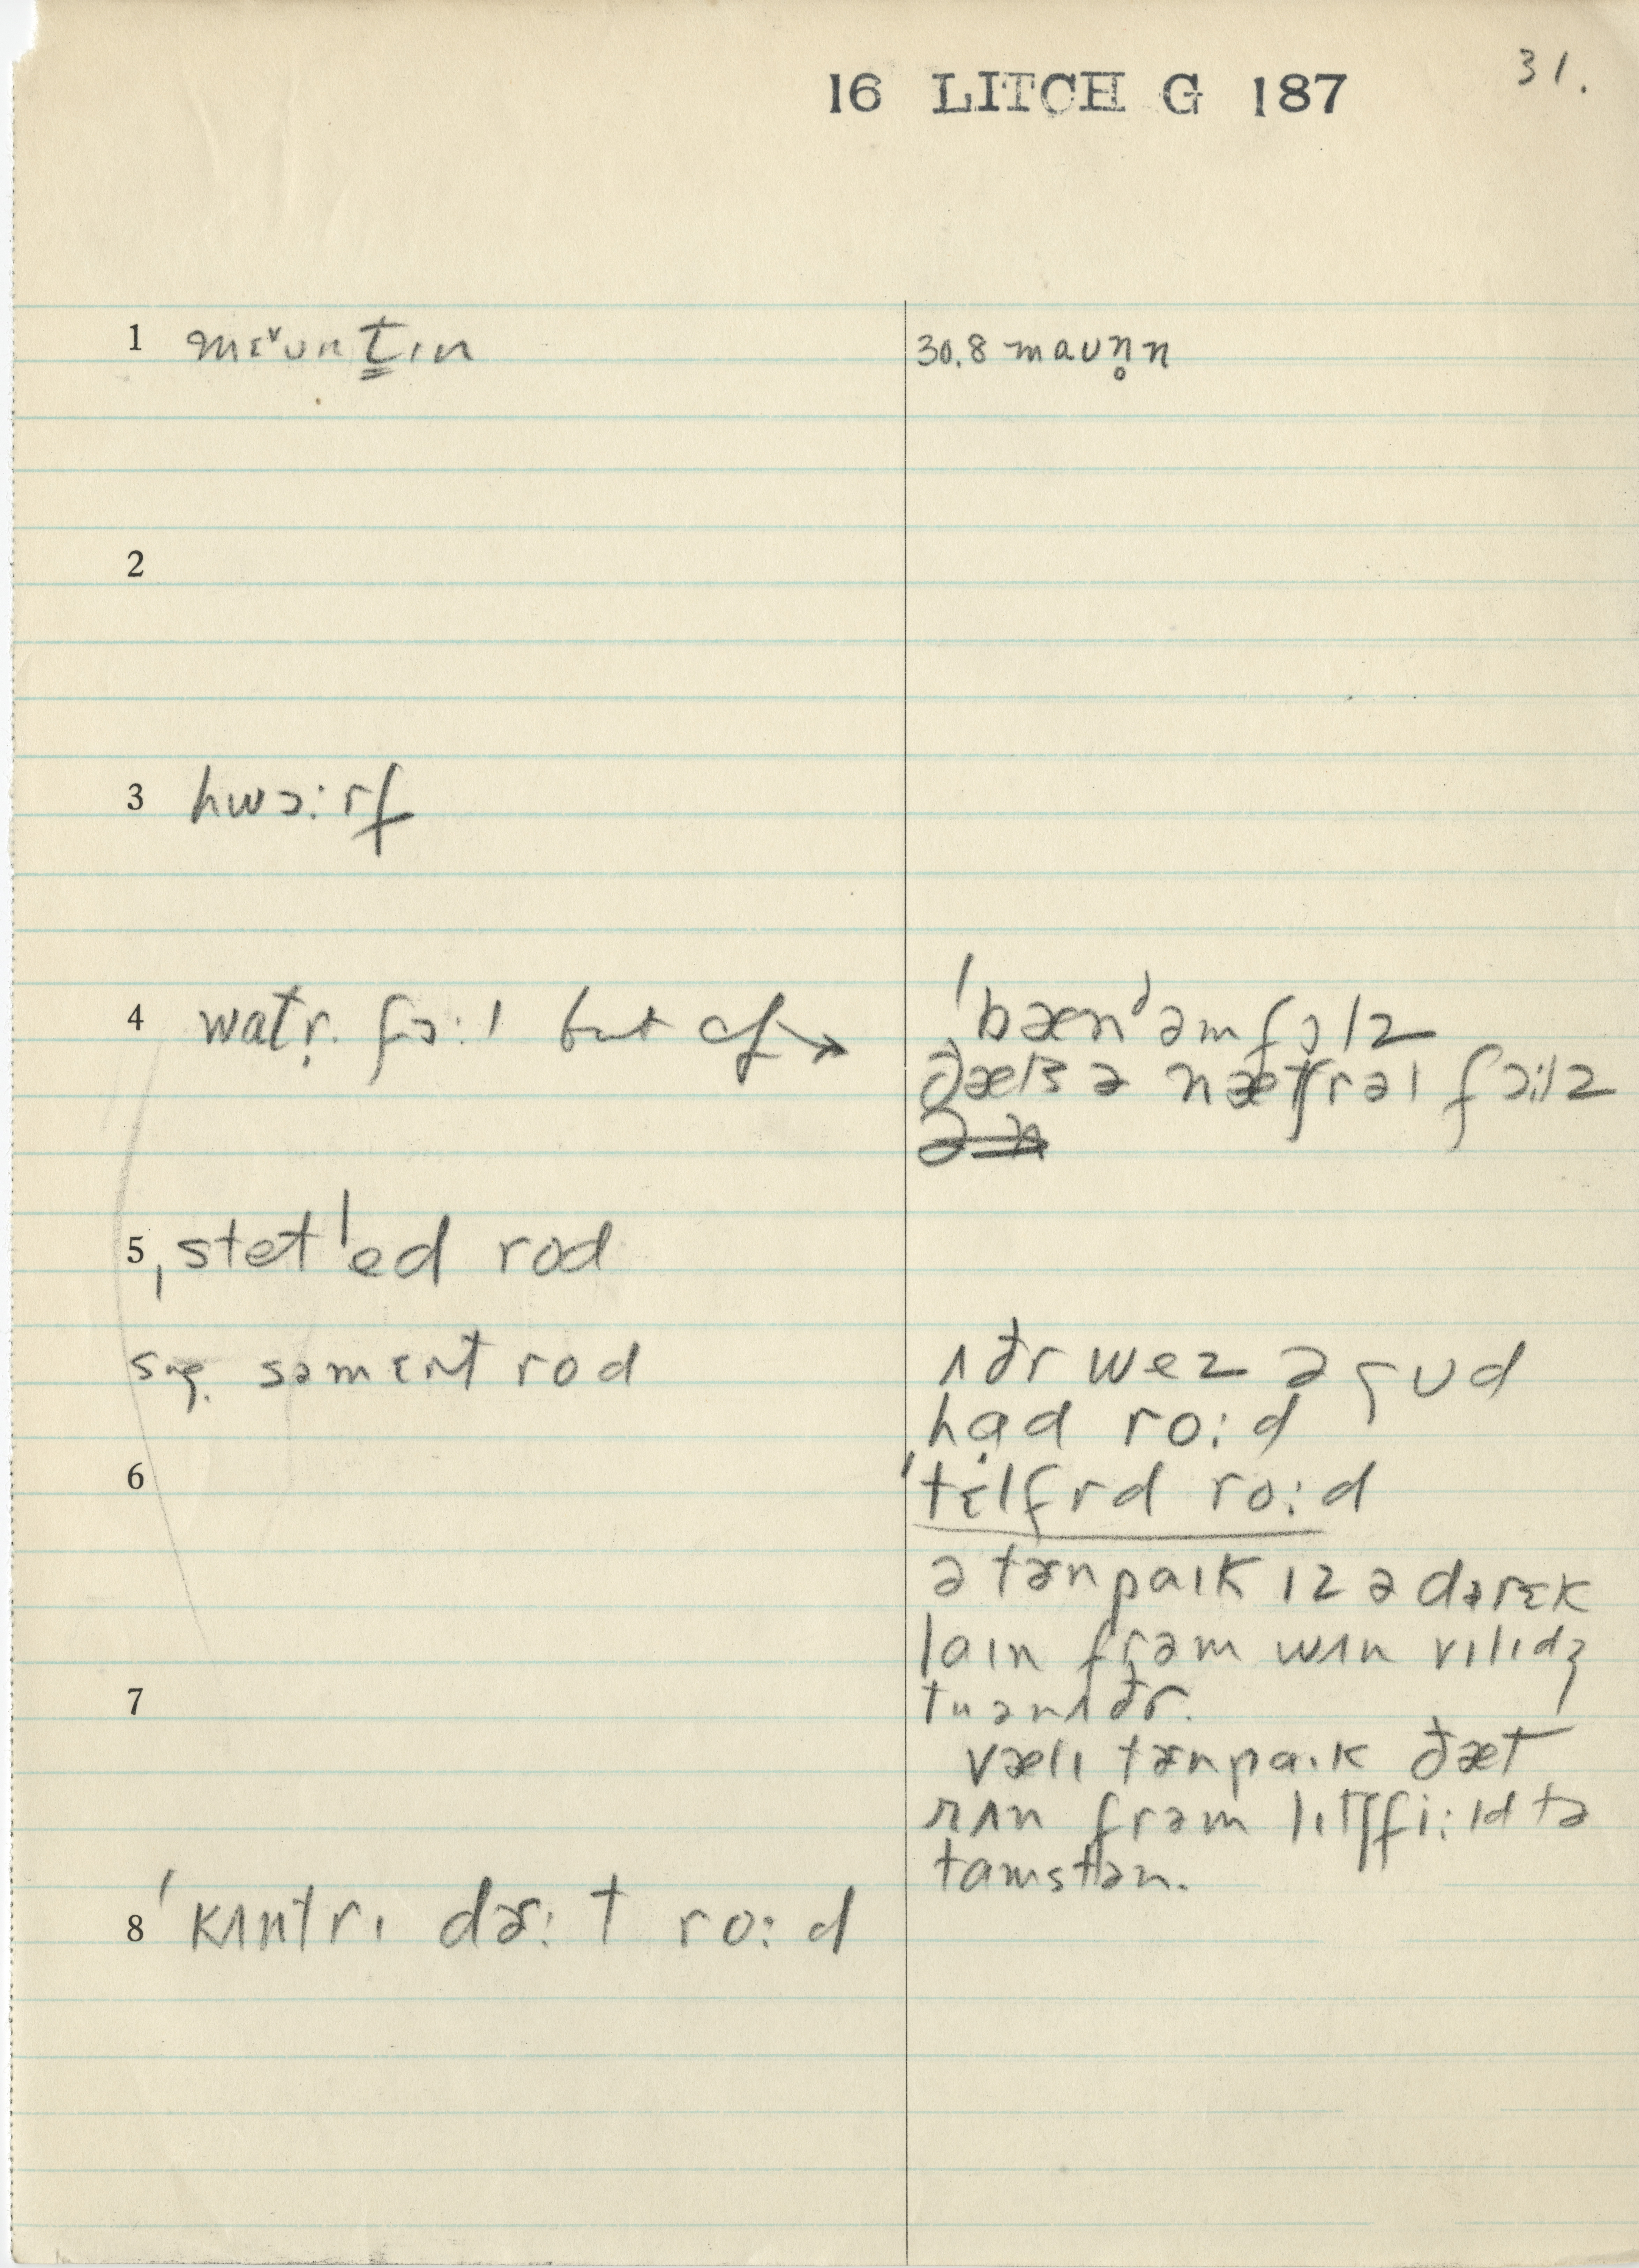 31.
16 LITCH G 187
1 mɛ˅ʊnt̳ɪn
30.8 maʊn̥n
2
3 hwɔ:rf
4 watr̩. fɔ:l but cf →
'bæn'əmfɔlz
ðæts ə nætʃrəl fɔ:lz
5 ˌstet'ed rod
sug. səmɛnt rod
ʌðr wez ə gʊd
hạd ro:d
6
'tɛlfrd ro:d
ə tɚnpaɪk ɪz ə dərɛk
laɪn frəm wʌn vɪlɪdʒ
7
tu ənʌðr.
vælɪ tɚnpaɪk ðæt
rʌn frəm lɪtʃfi:ld tə
tamstən.
8 'kʌntrɪ dɚ:t ro:d